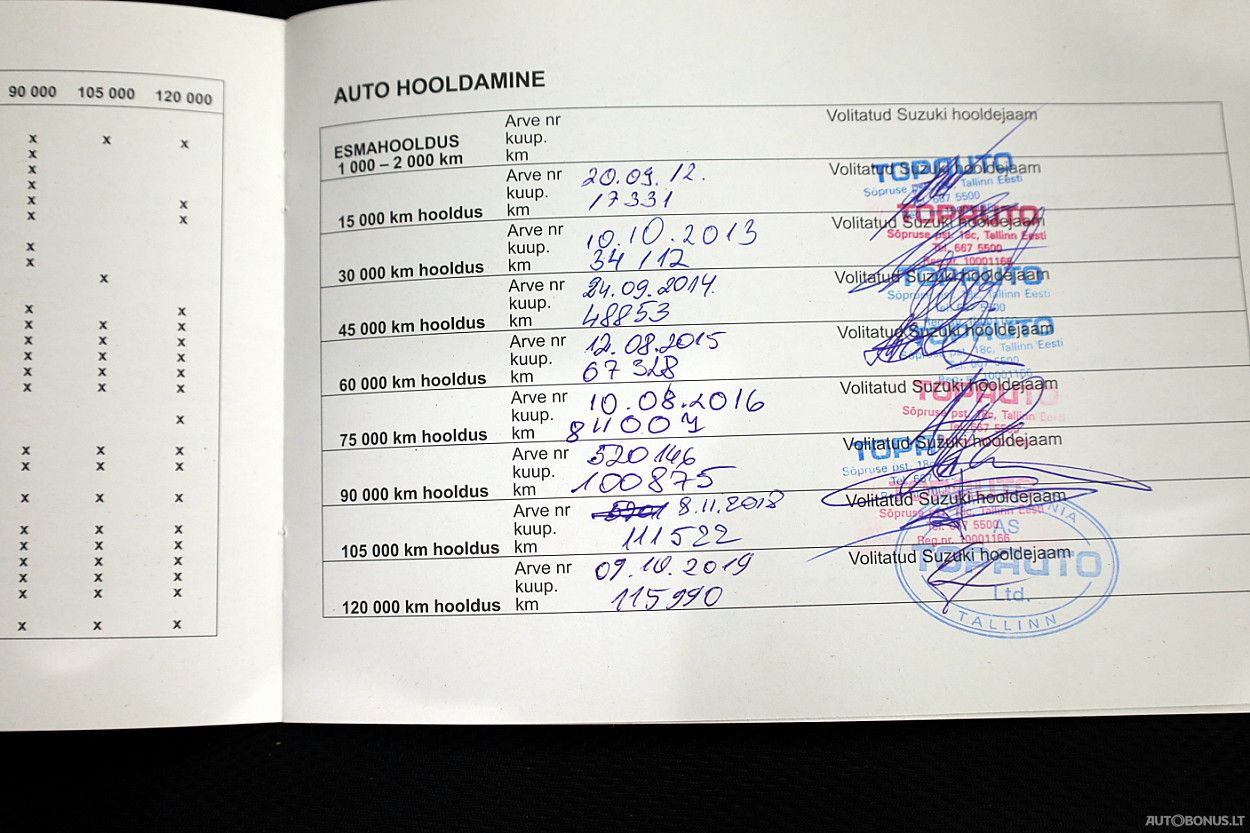 90 000 105 000 120 000
x x x
x
x
x
x x
x x
x
x
x
x x
x x x
x x x
x x x
x x x
x x x
x
x x x
x x x
x x x
x x x
x x x
x x x
x x x
x x x
x x x
AUTO HOOLDAMINE
ESMAHOOLDUS
1 000 – 2 000 km
Arve nr
kuup.
km
Volitatud Suzuki hooldejaam
15 000 km hooldus
Arve nr
kuup. 20.09.12.
km 17331
Volitatud Suzuki hooldejaam
TOPAUTO
Sõpruse Tallinn Eesti
667 5500
30 000 km hooldus
Arve nr
kuup. 10.10.2013
km 34112
Volitatud Suzuki hooldejaam
TOPAUTO
Sõpruse pst. 18c, Tallinn Eesti
Tel. 667 5500
Reg.nr. 10001166
45 000 km hooldus
Arve nr
kuup. 24.09.2014.
km 48853
Volitatud Suzuki hooldejaam
TOPAUTO
Tallinn Eesti
60 000 km hooldus
Arve nr
kuup. 12.08.2015
km 67328
Volitatud Suzuki hooldejaam
TOPAUTO
18c, Tallinn Eesti
10001166
75 000 km hooldus
Arve nr
kuup. 10.08.2016
km
Volitatud Suzuki hooldejaam
TOPAUTO
Sõpruse pst. 18c, Tallinn Eesti
Tel. 667 5500
90 000 km hooldus
Arve nr 520146
kuup.
km 100875
Volitatud Suzuki hooldejaam
Sõpruse pst. 18c
105 000 km hooldus
Arve nr 8.11.2018
kuup.
km 111522
Volitatud Suzuki hooldejaam
Tallinn Eesti
667 5500
Reg.nr. 10001166
120 000 km hooldus
Arve nr 09.10.2019
kuup.
km 115990
Volitatud Suzuki hooldejaam
AS
TOPAUTO
Ltd.
TALLINN
AUTOBONUS.LT